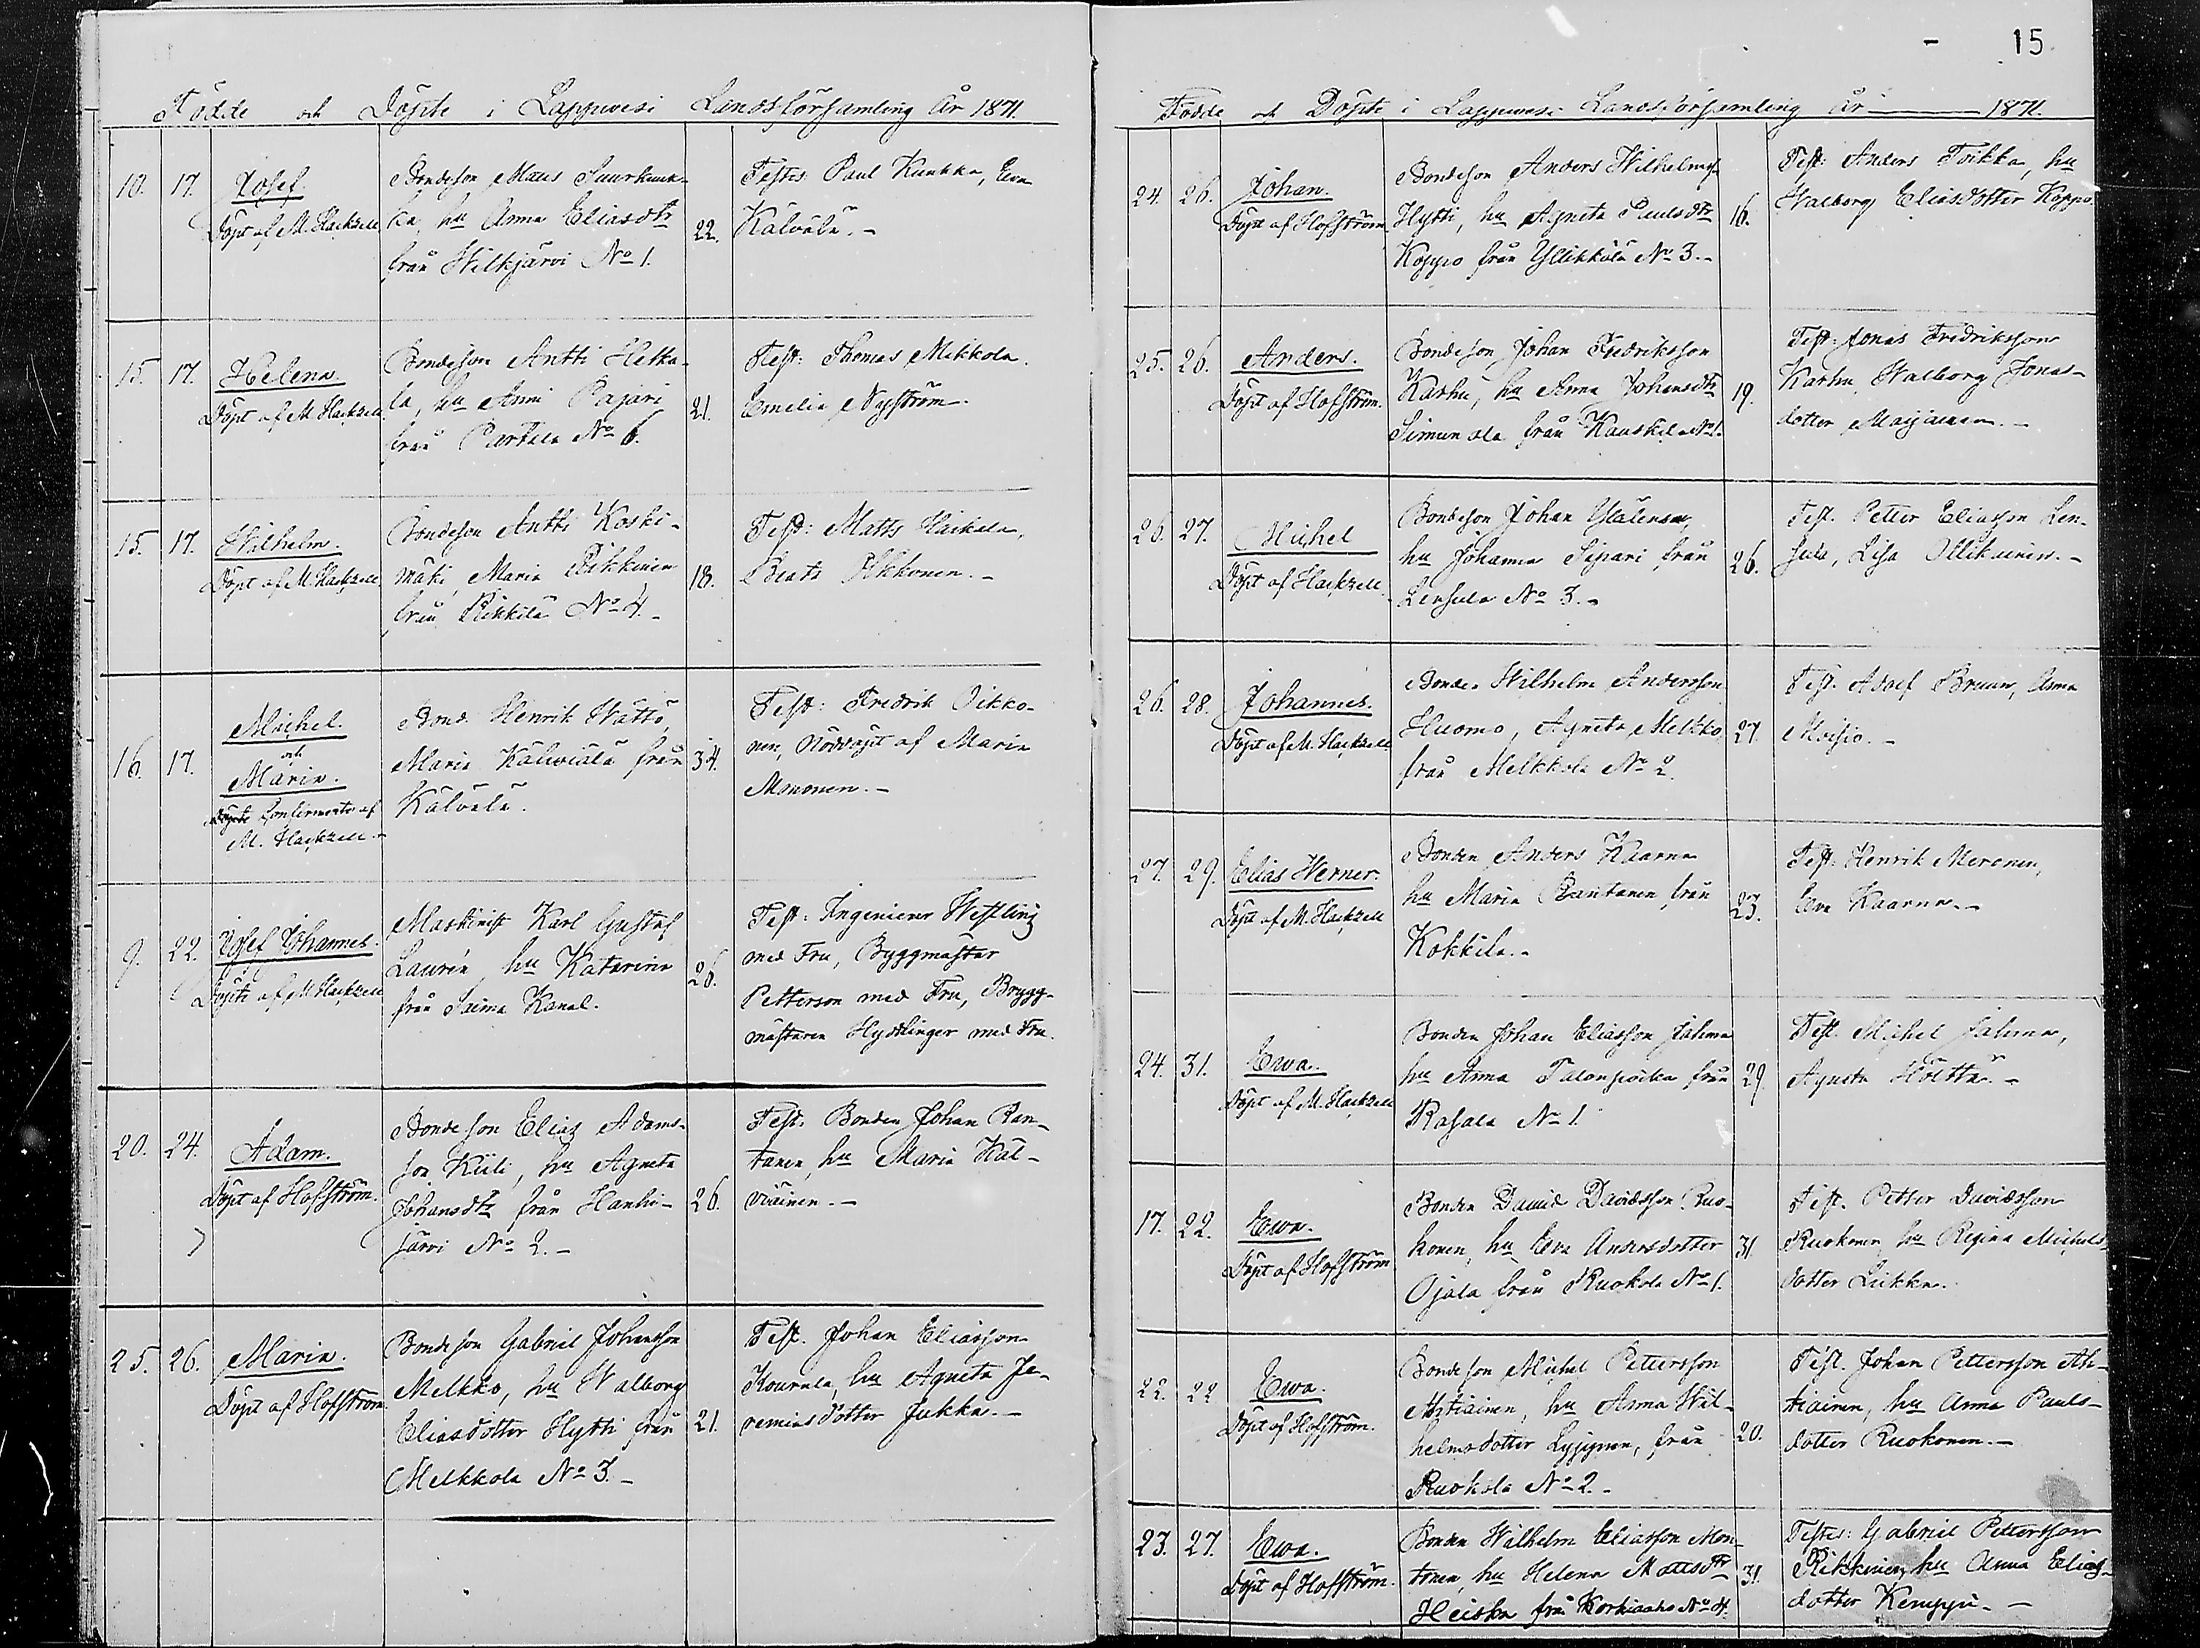 15
Födde och Döpte i Lappvesi Landsförsamling År 1871.
10. 17. Josef.
Döpt af M. Hackzell
Bondeson Mats Suurhnuk-
ka, hu Anna Eliasdtr
från Hilkjärvi No 1.
22.
Testes: Paul Kunkka, Eva
Kälvälä. -
15. 17. Helena.
Döpt af M. Hackzell
Bondeson Antti Hetka-
la, hu Anni Pajari
från Partala No 6.
21.
Test: Thomas Mikkola.
Emelie Nyström.
15. 17. Wilhelm.
Döpt af M. Hackzell
Bondeson Antti Koski-
mäki, Maria Rikkinen
från Rikkilä No 4. -
18.
Test: Matts Haikala,
Beata Pikkonen. -
16. 17. Michel.
och
Maria.
Döpte Konfirmerte af
M. Hackzell. -
Bond. Henrik Wättö,
Maria Kälwiälä från
Kälvälä.
34.
Test: Fredrik Oikko-
nen, Nöddöpt af Maria
Mononen. -
9. 22. Josef Johannes.
Döpte af M. Hackzell
Maskinist Karl Gustaf
Laurén, hu Katarina
från Saima Kanal.
26.
Test: Ingeniern Westling
med Fru, Byggmästar
Petterson med Fru, Brygg-
mästaren Hydtlinger med Fru.
20. 24. Adam.
Döpt af Hofström.
Bondeson Elias Adams-
son Kiili, hu Agneta
Johansdtr från Hanhi-
järvi No 2. -
26.
Test. Bonden Johan Ran-
tanen, hu Maria Käl-
viäinen. -
25. 26. Maria.
Döpt af Hofström
Bondeson Gabriel Johansson
Melkko, hu Walborg
Eliasdotter Hytti från
Melkkola No 3. -
21.
Test. Johan Eliasson
Kourula, hu Agneta Je-
remiasdotter Jukka. -
Födde och Döpte i Lappvesi Landsförsamling År 1871.
24. 26. Johan.
Döpt af Hofström
Bondeson Anders Wilhelmss.
Hytti, hu Agneta Paulsdtr
Koppo från Yllikkälä No 3. -
16.
Test: Anders Toikka, hu
Walborg Eliasdotter Koppo.
25. 26. Anders.
Döpt af Hofström.
Bondeson Johan Fredriksson
Karhu, hu Anna Johansdtr
Simunala från Kauskila No 1.
19.
Test: Jonas Fredriksson
Karhu, Walborg Jonas-
dotter Marjainen. -
26. 27. Michel
Döpt af Hackzell
Bondeson Johan Ylätensu,
hu Johanna Sipari från
Lensula No 3. -
26.
Test. Petter Eliasson Len-
sula, Lisa Ollikainen. -
26. 28. Johannes.
Döpt af M. Hackzell
Bonden Wilhelm Andersson
Huomo, Agneta Melkko
från Melkkola No 2.
27.
Test. Adolf Bruun, Anna
Moisio. -
27. 29. Elias Werner.
Döpt af M. Hackzell
Bonden Anders Kaarna
hu Maria Rautanen från
Kokkila. -
23.
Test: Henrik Meronen,
Eva Kaarna. -
24. 31. Ewa.
Döpt af M. Hackzell
Bonden Johan Eliasson Jahma
hu Anna Talonpoika från
Rasala No 1.
29.
Test. Michel Jahma,
Agneta Hölttä. -
17. 22. Ewa.
Döpt af Hofström
Bonden David Davidsson Ruo-
konen, hu Eva Andersdotter
Ojala från Ruohola No 1.
31.
Test. Petter Davidsson
Ruokonen, hu Regina Michels-
dotter Liikka.
22. 22 Ewa.
Döpt af Hofström.
Bondeson Michel Pettersson
Ahtiainen, hu Anna Wil-
helmsdotter Lyijynen, från
Ruohola No 2. -
20.
Test. Johan Pettersson Ah-
tiainen, hu Anna Pauls-
dotter Ruokonen. -
23. 27. Ewa.
Döpt af Hofström.
Bonden Wilhelm Eliasson Mon-
tonen, hu Helena Mattsdtr
Heiska från Korkiaaho No 4.
31.
Testes: Gabriel Pettersson
Rikkinen, hu Anna Elias-
dotter Kemppi. -